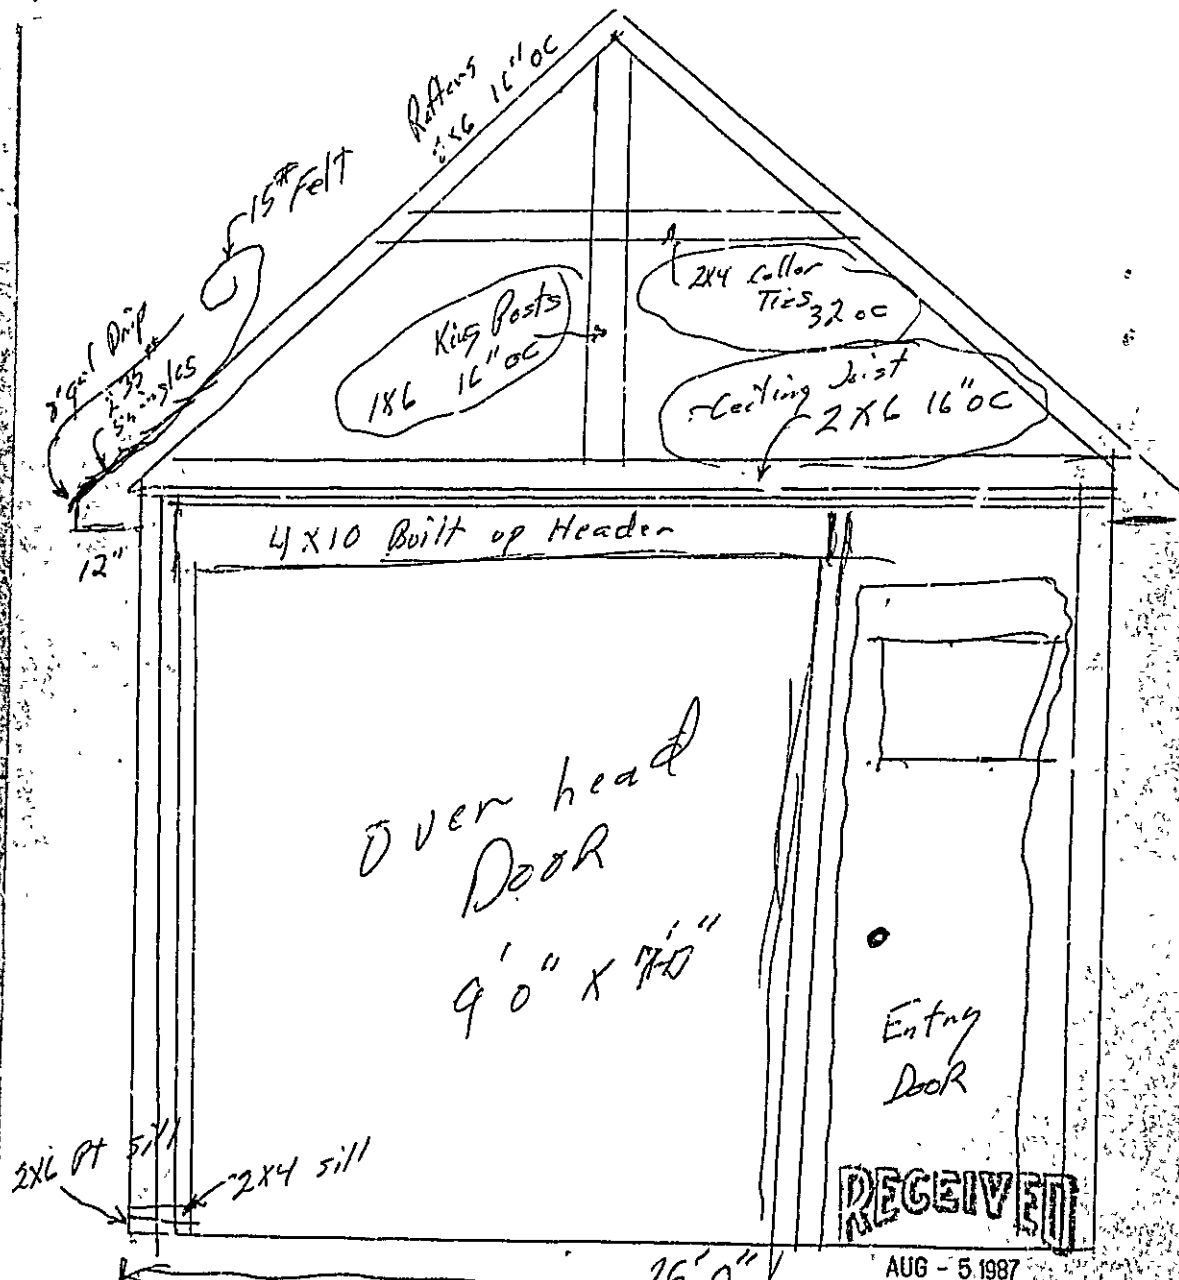 Rafters
2x6 16" OC
15# Felt
8" gal Drip
235#
Shingles
King Posts
1x6 16" OC
2x4 Collar
Ties 32 oc
Ceiling Joist
2x6 16" OC
12"
4x10 Built up Header
Over head
Door
9'0" x 7'0"
Entry
Door
2x6 Pt sill
2x4 sill
RECEIVED
AUG - 5 1987